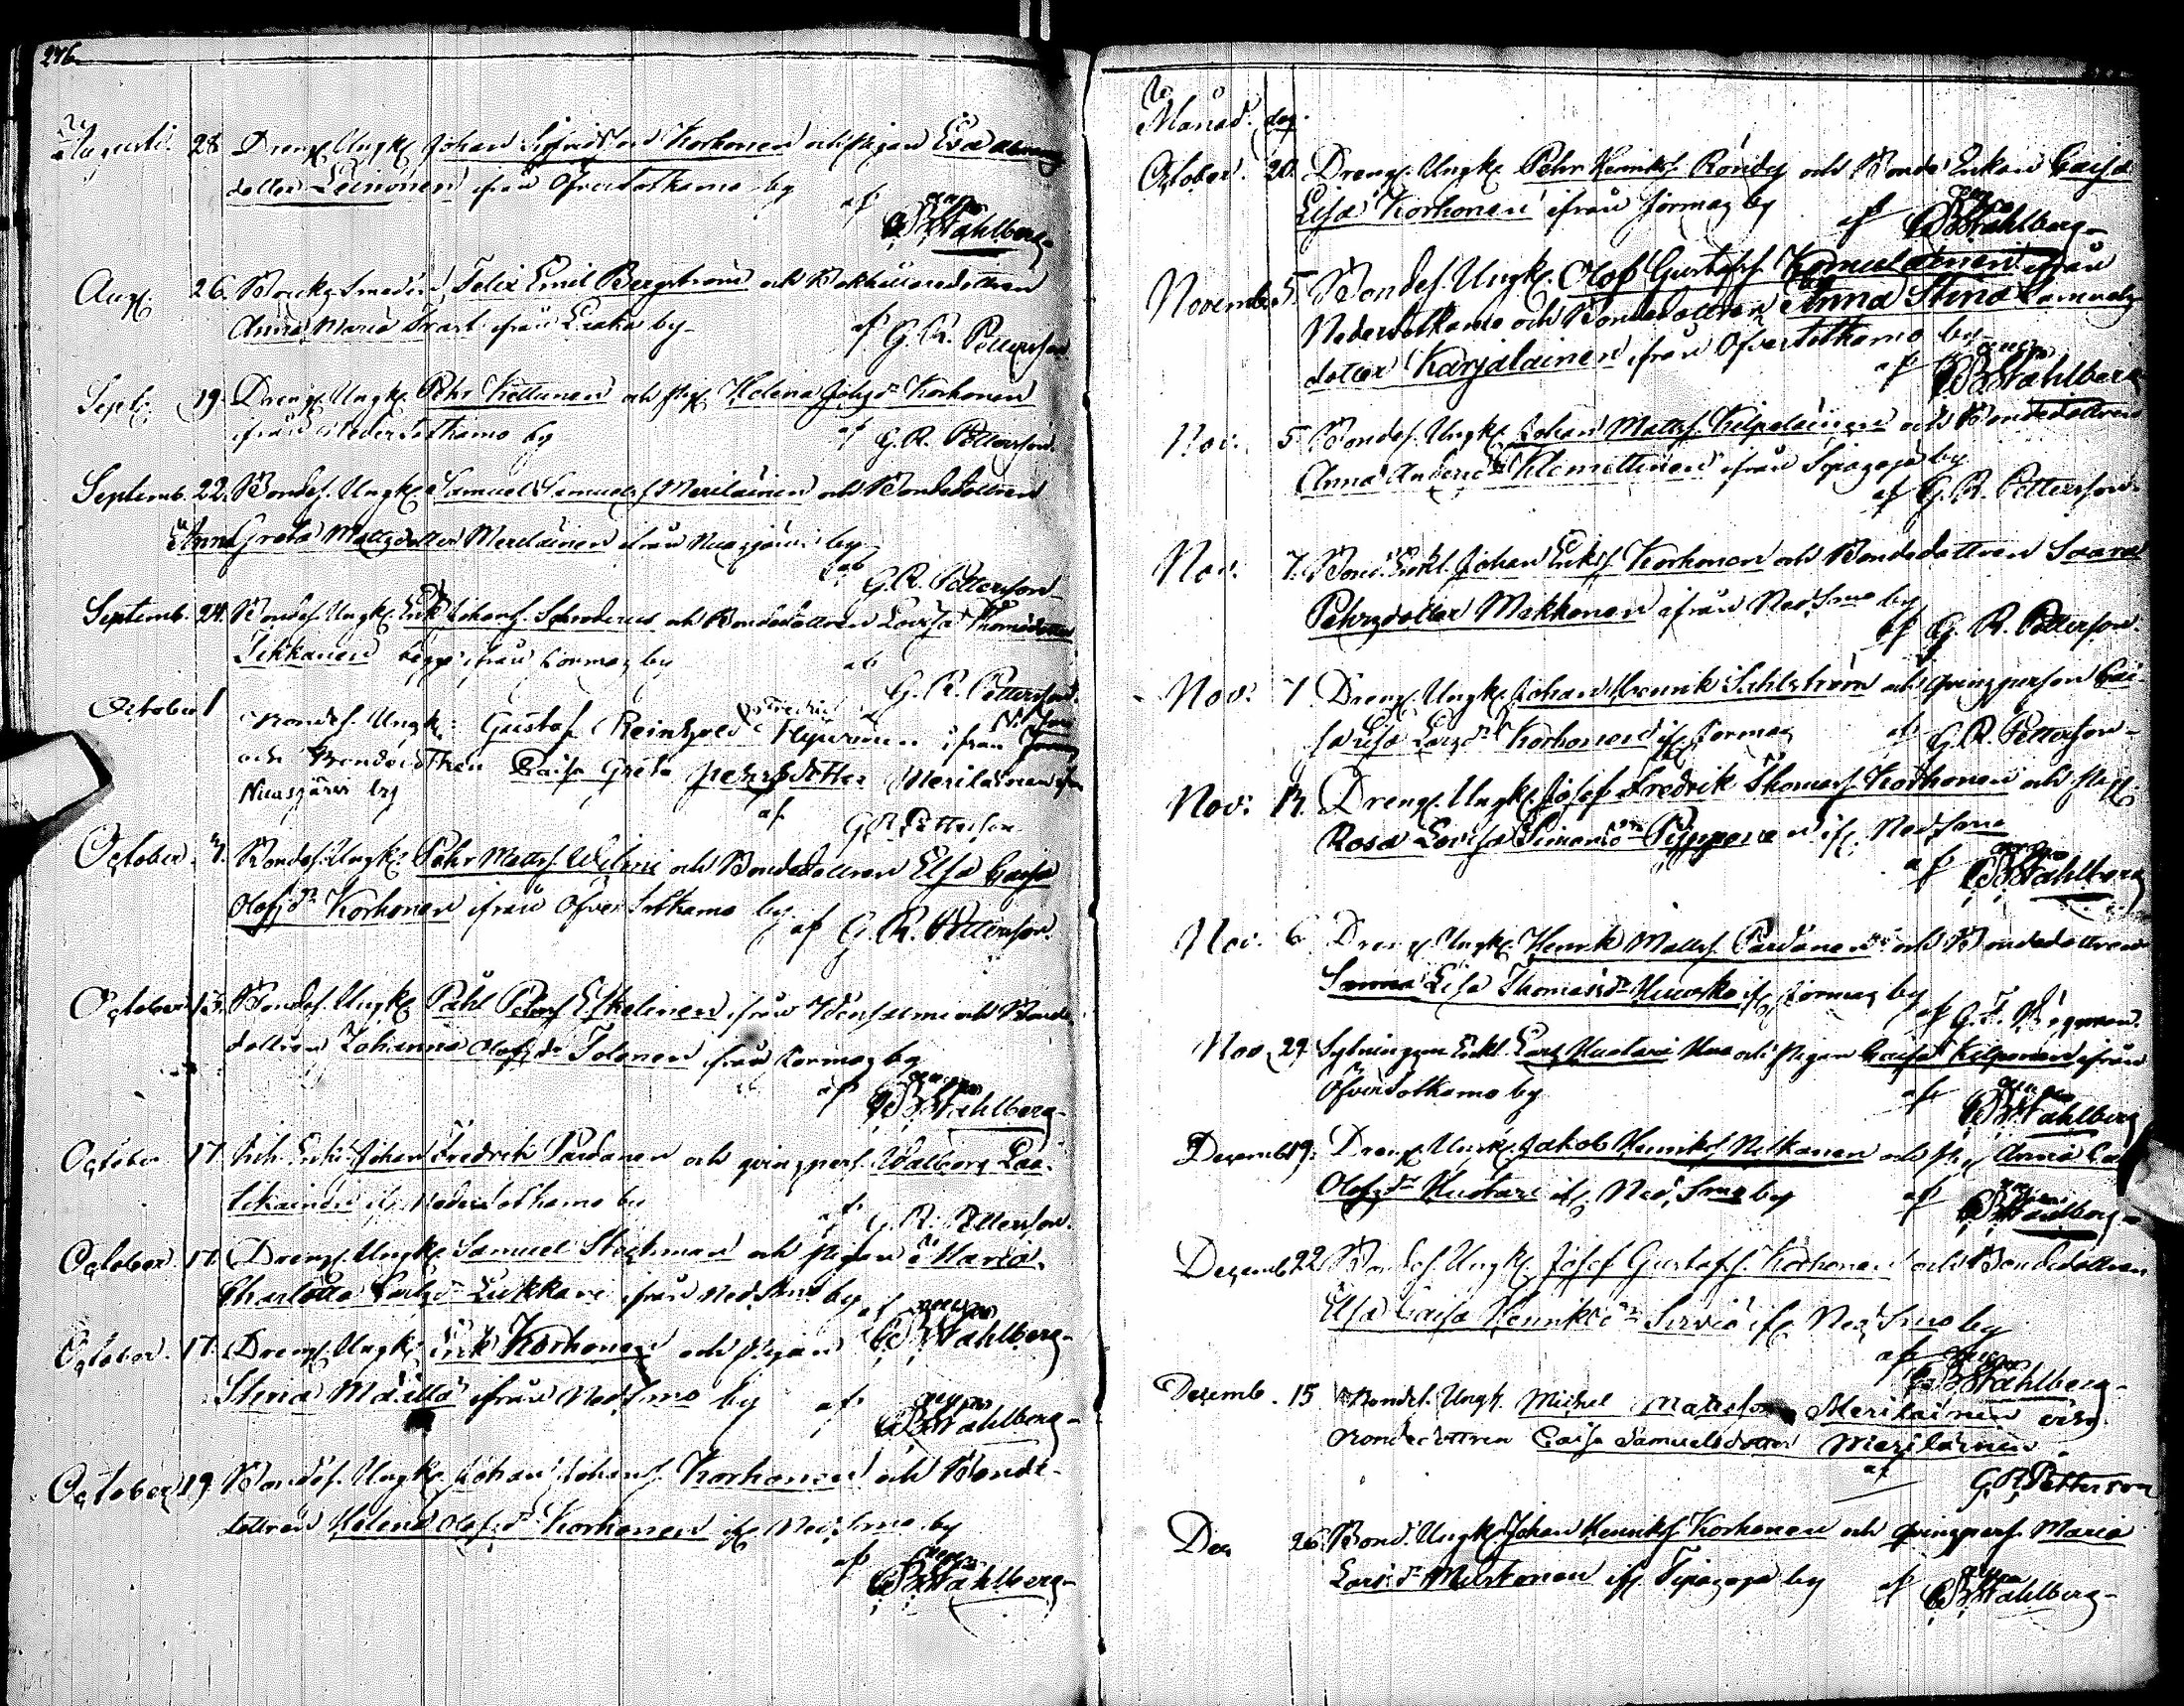 276.
Augusti. 28 Dreng. Ungk. Johan Sigfridson Korhonen och Pigan Eva
dotter Leinonen ifrån Öfversotkamo by
af B. Ståhlberg
Aug. 26. Bruks Smeden Felix Emil Bergström och Bokhållaredottren
Anna Maria Trast ifrån by
af G. R. Petterson
Sept. 19. Dreng. Ungk. Pehr Kettunen och Pig. Helena Johs dr Korhonen
ifrån Nedersotkamo by af G. R. Petterson.
Septemb. 22. Bondes. Ungk. Samuel Samuels. Meriläinen och Bondedottren
Anna Greta Matts dotter Meriläinen ifrån Nuasjärvi by
af G. R. Petterson
Septemb. 24. Bondes. Ungk. Erik Johans. Schroderus och Bondedottren Lovisa Thomsdotter
Tikkanen begge ifrån Sormas by af
G. R. Petterson.
October 1 Bondes. Ungk. Gustaf Reinhold Fredric Hyvönen ifrån
och Bondedottren Caisa Greta Pehrsdotter Meriläinen ifrån
Nuasjärvi by
af G R Petterson
October. Bondes. Ungk. Pehr Matts. och Bondedottren Elsa Caisa
Olofs dr Korhonen ifrån Öfver Sotkamo by
af G. R. Petterson.
October 13. Bondes. Ungk. Påhl Peters. Eskelinen ifrån Idensalmi och Bonde
dottren Johanna Olofs dr Tolonen ifrån Sormas by
af B. Ståhlberg
October 17. Johan Fredrik Pardanen och qvinspers. Walborg
ifr. Nedersotkamo by
af G. R. Petterson.
October. 17. Dreng. Ungk. Samuel Stickman och Pigan Maria
Charlotta Carls dr Lukkari ifrån Ned. Smo by
af B. Ståhlberg
October. 17. Dreng. Ungk. Erik Korhonen och Pigan
Stina Määttä ifrån Ned. Smo by af
B. Ståhlberg
October 19. Bondes. Ungk. Johan Johans. Korhonen och Bonde-
dottren Helena Olofs dr Korhonen ifr. Ned. Smo by
af B. Ståhlberg
Månad. dag.
October. 20. Dreng. Ungk. Pehr Henriks. Röndy och Bonde Enkan Caisa
Lisa Korhonen ifrån Sormas by
af B. Ståhlberg
Novemb. 5. Bondes. Ungk. Olof Gustafs. Komulainen ifrån
Nedersotkamo och Bondedottren Anna Stina Samuels
dotter Karjalainen ifrån Öfversotkamo by
af B. Ståhlberg
Nov. 5. Bondes. Ungk. Johan Matts. Kilpeläinen och Bondedottren
Anna Anders dr Klemettinen ifrån Tipasoja by
af G. R. Petterson.
Nov. 7. Bond. Enkl. Johan Eriks. Korhonen och Bondedottren Saara
Pehrsdotter Mokkonen ifrån Ned. Smo by
af G. R. Petterson.
Nov. 7. Dreng. Ungk. Johan Henrik Sahlström och qvinsperson Cai-
sa Lisa Lars dr Korhonen ifr. Sormas
af G. R. Petterson
Nov. 14. Dreng. Ungk. Josef Fredrik Thomas. Korhonen och Pig.
Rosa Lovisa Simons dr Piipponen ifr. Ned. Smo
af B. Ståhlberg
Nov. 6 Dreng. Ungk. Henrik Matts. Pardanen och Bondedottren
Lisa Thomas dr Huusko ifr. Sormas by
af G. F.
Nov. 29. Sytningsm. Enkl. Lars Huotari och Pigan Caisa Kilponen ifrån
Öfversotkamo by
af B. Ståhlberg
Dezemb. 19. Dreng. Ungk. Jakob Henriks. Nitkanen och Pig. Anna
Olofs dr Huotari ifr. Ned. Smo by
af B. Ståhlberg
Dezemb. 22. Bondes. Ungk. Josef Gustafs. Korhonen och Bondedottren
Elsa Caisa Henriks dr Serviö ifr. Ned. Smo by
af B. Ståhlberg
Dezemb. 15 Bondes. Ungk. Michel Matsson Meriläinen
Bondedottren Caisa Samuelsdotter Meriläinen.
af G. R. Petterson
Dez 26. Bond. Ungk. Johan Henriks. Korhonen och qvinspers. Maria
Lars dr Mustonen ifr. Tipasoja by
af B. Ståhlberg